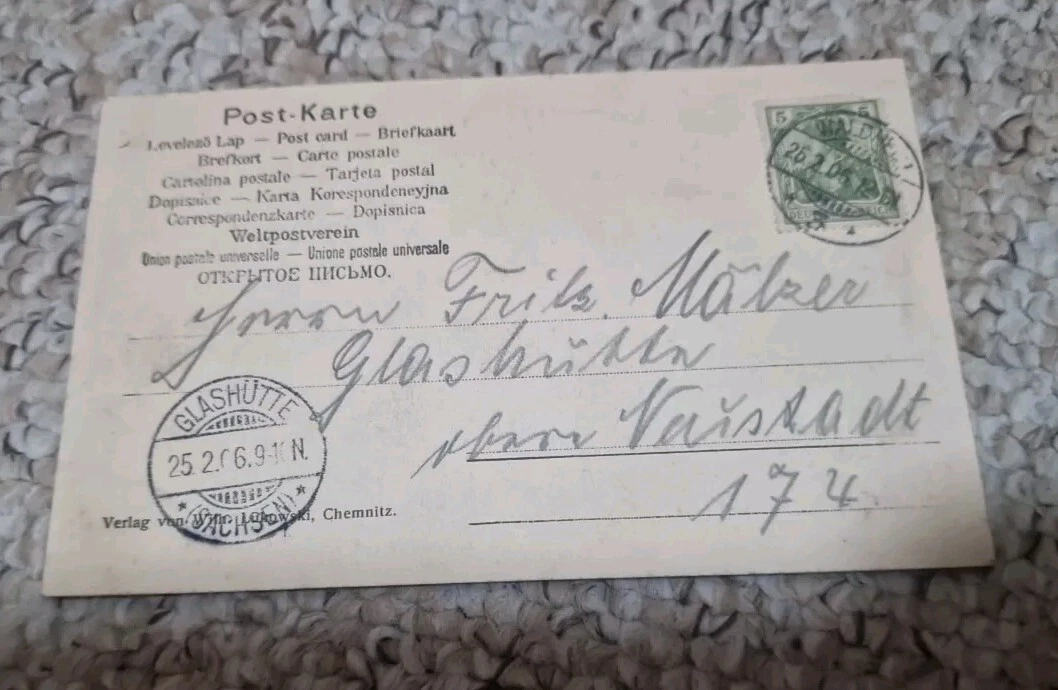 Post-Karte
Levelező Lap — Post card — Briefkaart
Brefkort — Carte postale
Cartolina postale — Tarjeta postal
Dopisnice — Karta Korespondencyjna
Correspondenzkarte — Dopisnica
Weltpostverein
Union postale universelle — Unione postale universale
ОТКРЫТОЕ ПИСЬМО.
5 5
Herrn Fritz Mälzer
Glashütte
obere
174
GLASHÜTTE
25.2.06.9-10 N.
* (SACHSEN) *
Verlag von Wilh. Chemnitz.